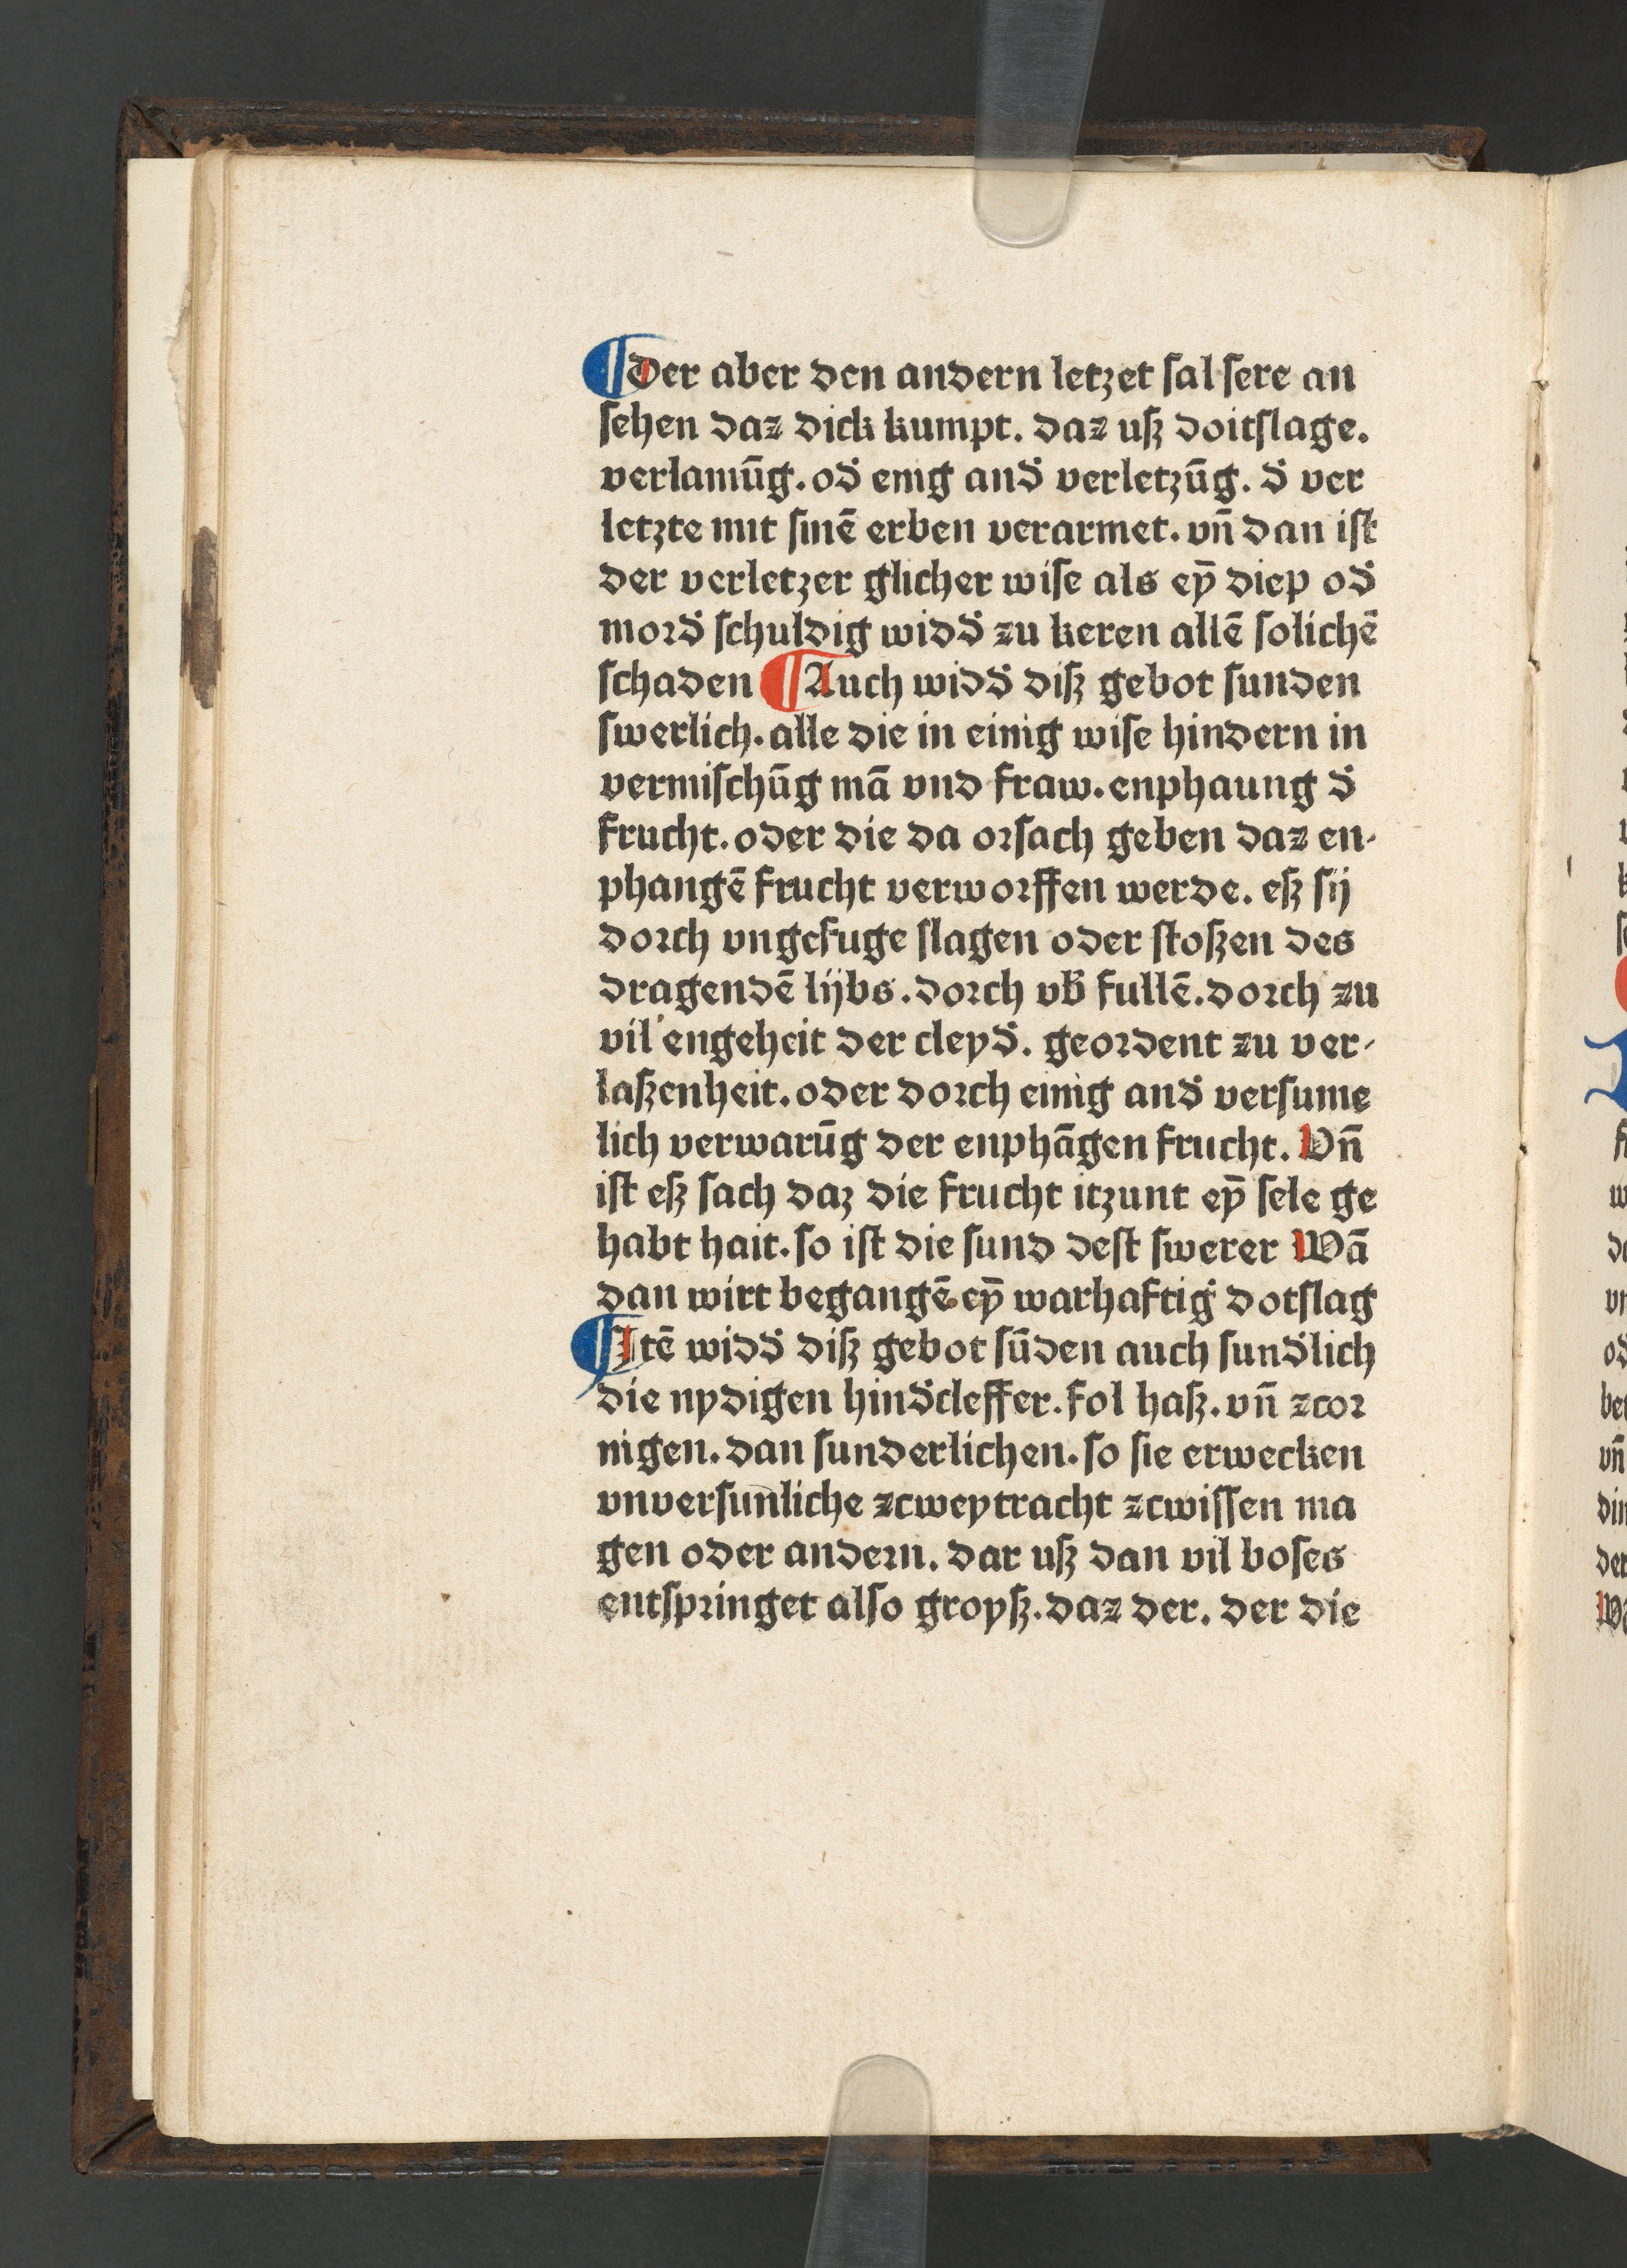 ¶Der aber den andern letzet ſal ſere an
ſehen daz dick kumpt. daz uſz doitſlage.
verlamūg. od̕ enig and̕ verletzūg. d̕ ver
letzte mit ſinē erben verarmet. vn̄ dan iſt
der verletzer glicher wiſe als eȳ diep od̕
moꝛd̕ ſchuldig wid̕ zu keren allē ſolichē
ſchaden ¶Auch widd̕ diſz gebot ſunden
ſwerlich. alle die in einig wiſe hindern in
vermiſchūg mā vnd fraw. enphaung d̕
frucht. oder die da oꝛſach geben daz en-
phangē frucht verwoꝛffen werde. eſz ſij
doꝛch vngefuge ſlagen oder ſtoſzen des
dragendē lijbs. doꝛch vb̕ fullē. doꝛch zu
vil engeheit der cleyd̕. geoꝛdent zu ver-
laſzenheit. oder doꝛch einig and̕ verſume
lich verwarūg der enphāgen frucht. Vn̄
iſt eſz ſach daz die frucht itzunt eȳ ſele ge
habt hait. ſo iſt die ſund deſt ſwerer Wā
dan wirt begangē eȳ warhaftig dotſlag
¶Itē widd̕ diſz gebot ſūden auch ſund̕lich
die nydigen hind̕cleffer. fol haſz. vn̄ zcoꝛ
nigen. dan ſunderlichen. ſo ſie erwecken
vnverſunliche zcweytracht zcwiſſen ma
gen oder andeꝛn. dar uſz dan vil boſes
entſpꝛinget alſo groyſz. daz der. der die